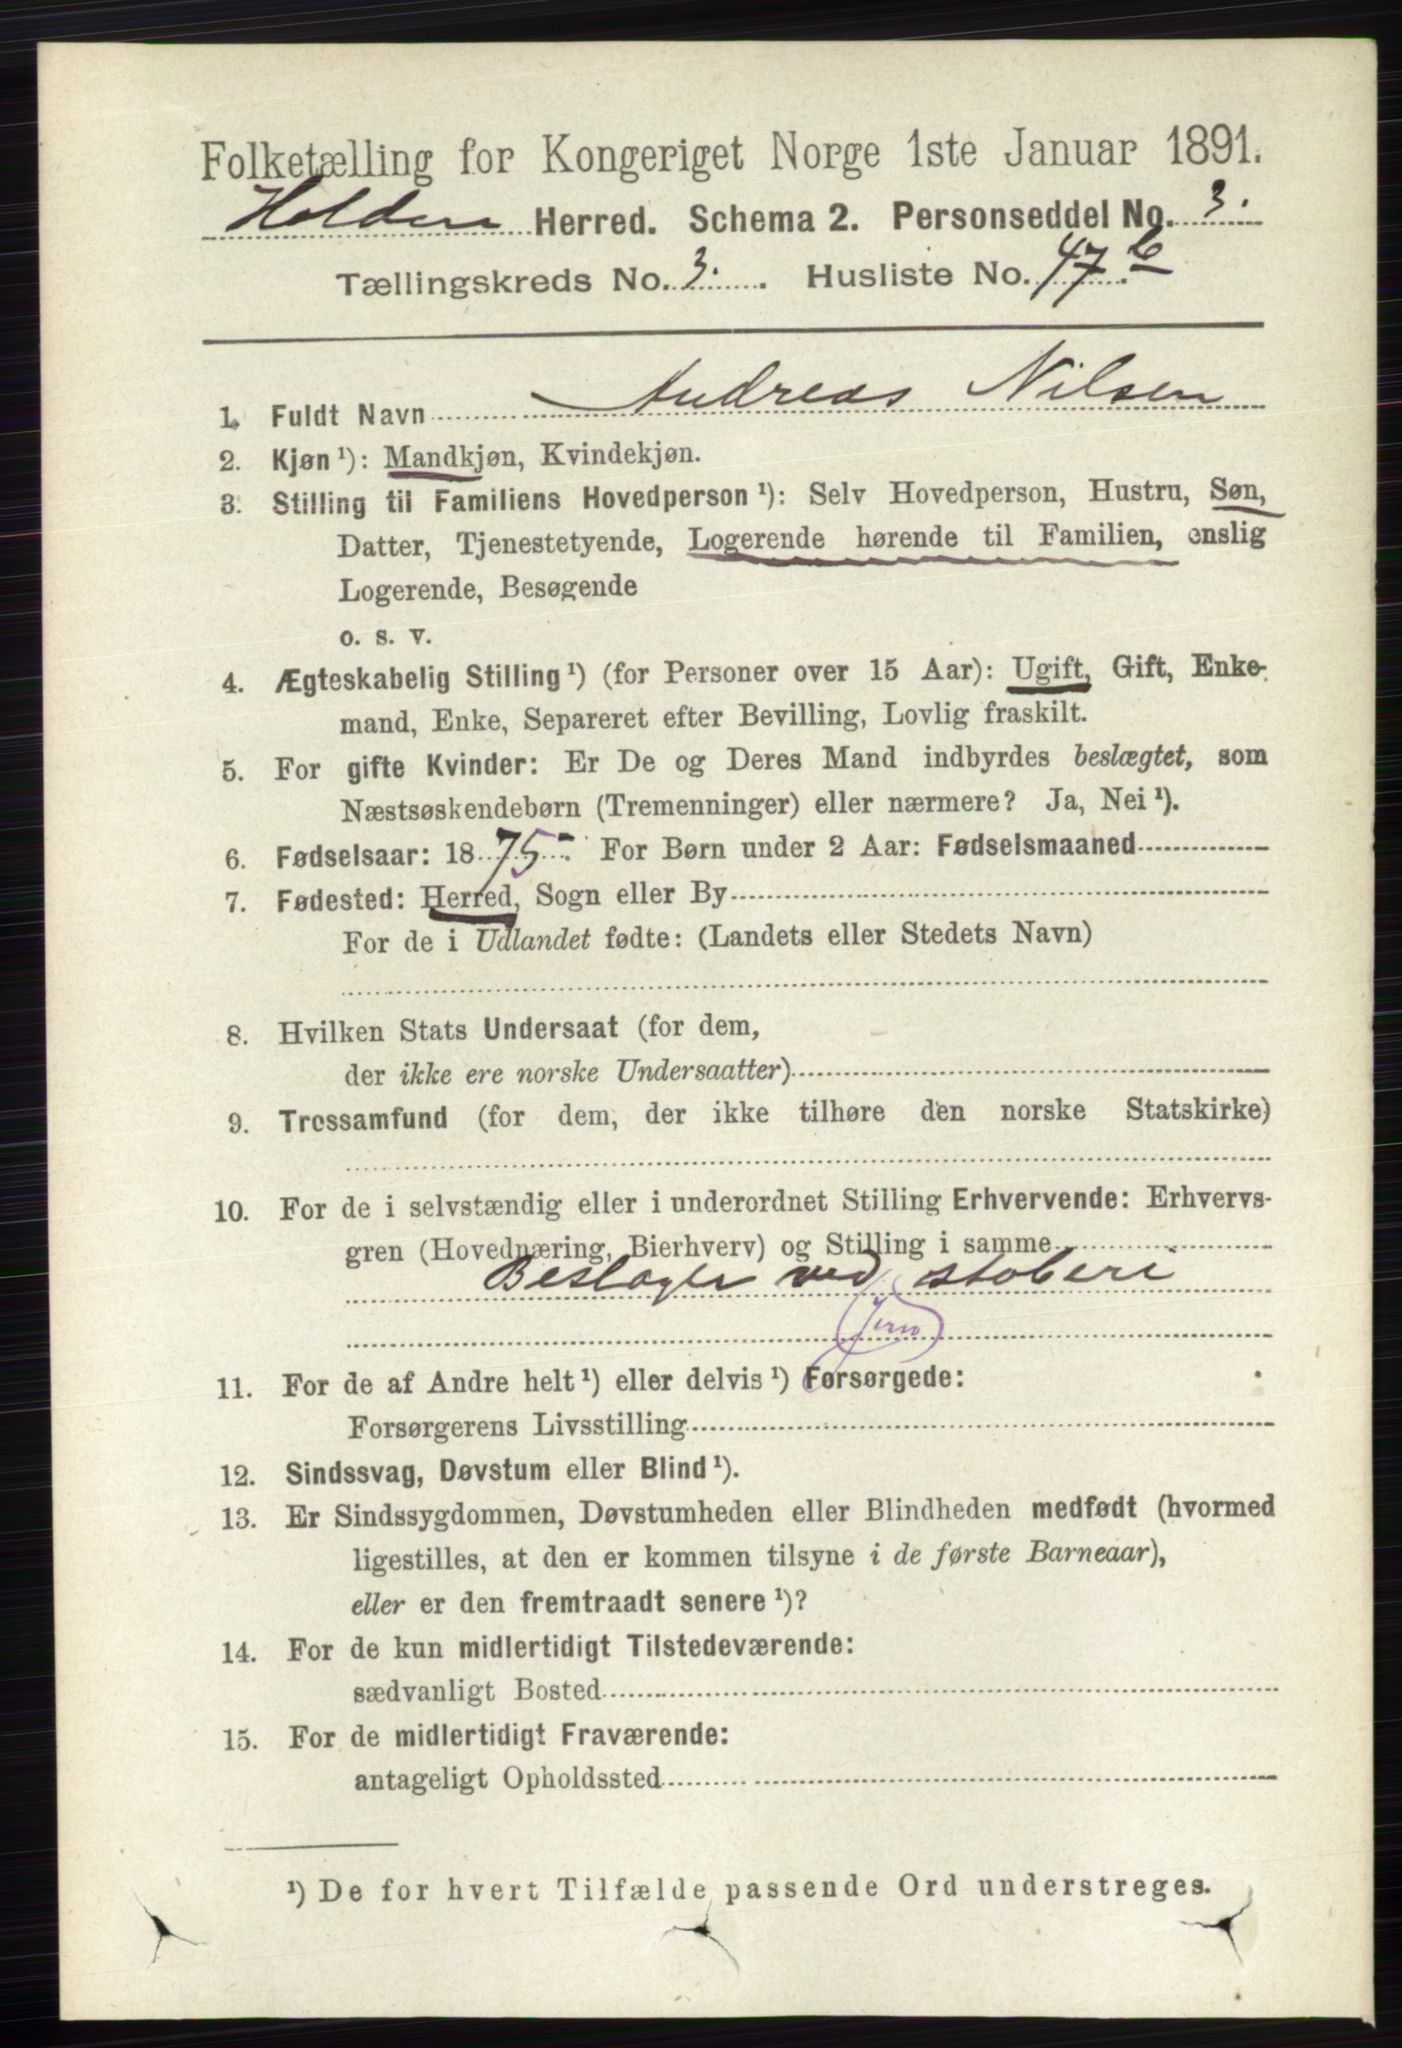 Folketælling for Kongeriget Norge 1ste Januar 1891.
Holden Herred. Schema 2. Personseddel No. 3.
Tællingskreds No. 3. Husliste No. 47. b
1. Fuldt Navn Andreas Nilsen
2. Kjøn ¹): Mandkjøn, Kvindekjøn.
3. Stilling til Familiens Hovedperson ¹): Selv Hovedperson, Hustru, Søn,
Datter, Tjenestetyende, Logerende hørende til Familien, enslig
Logerende, Besøgende
o. s. v.
4. Ægteskabelig Stilling ¹) (for Personer over 15 Aar): Ugift, Gift, Enke-
mand, Enke, Separeret efter Bevilling, Lovlig fraskilt.
5. For gifte Kvinder: Er De og Deres Mand indbyrdes beslægtet, som
Næstsøskendebørn (Tremenninger) eller nærmere? Ja, Nei ¹).
6. Fødselsaar: 1875. For Børn under 2 Aar: Fødselsmaaned
7. Fødested: Herred, Sogn eller By
For de i Udlandet fødte: (Landets eller Stedets Navn)
8. Hvilken Stats Undersaat (for dem,
der ikke ere norske Undersaatter)
9. Trossamfund (for dem, der ikke tilhøre den norske Statskirke)
10. For de i selvstændig eller i underordnet Stilling Erhvervende: Erhvervs-
gren (Hovednæring, Bierhverv) og Stilling i samme
Beslager ved støberi
(Jern)
11. For de af Andre helt ¹) eller delvis ¹) Forsørgede:
Forsørgerens Livsstilling
12. Sindssvag, Døvstum eller Blind ¹).
13. Er Sindssygdommen, Døvstumheden eller Blindheden medfødt (hvormed
ligestilles, at den er kommen tilsyne i de første Barneaar),
eller er den fremtraadt senere ¹)?
14. For de kun midlertidigt Tilstedeværende:
sædvanligt Bosted
15. For de midlertidigt Fraværende:
antageligt Opholdssted
¹) De for hvert Tilfælde passende Ord understreges.